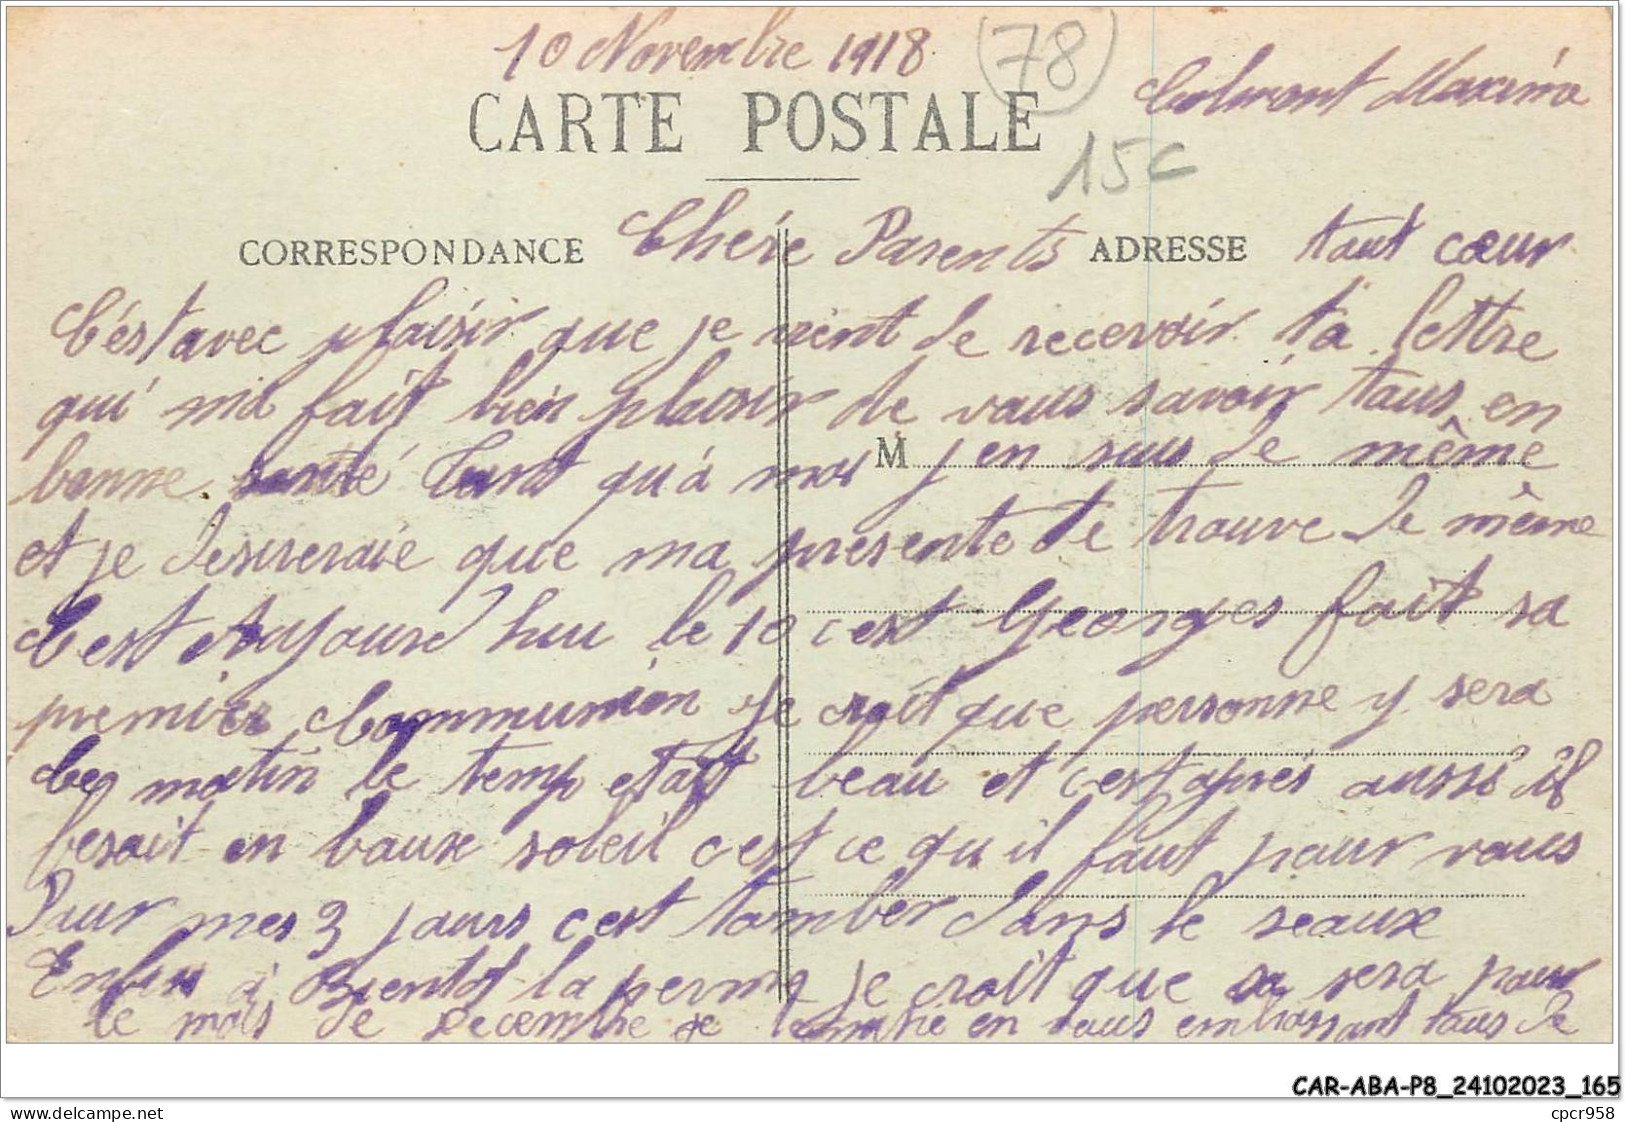 10 Novembre 1918
78
Colmont Maxima
CARTE POSTALE
15c
CORRESPONDANCE
Chére Parents
ADRESSE
tout cœur
C'ést avec plaisir que je vient de recevoir ta lettre
qui ma fait bien plaisir de vous savoir tous en
bonne santé Tant qu'a moi
M j'en suis de même
et je desireraie que ma présente te trouve de même
C'est Aujourd'hui le 10 c'est Georges fait sa
premier Communion Je croit que personne y sera
matin le temp etait beau et c'est après aussi il
fesait en baux soleil c'est ce qu'il faut pour vous
Pour mes 3 jours c'est tomber dans le seaux
Enfin à Bientot la perme je croit que sa sera pour
le mois de Decembre je termine en vous embrassant tous de
CAR-ABA-P8_24102023_165
www.delcampe.net
cpcr958